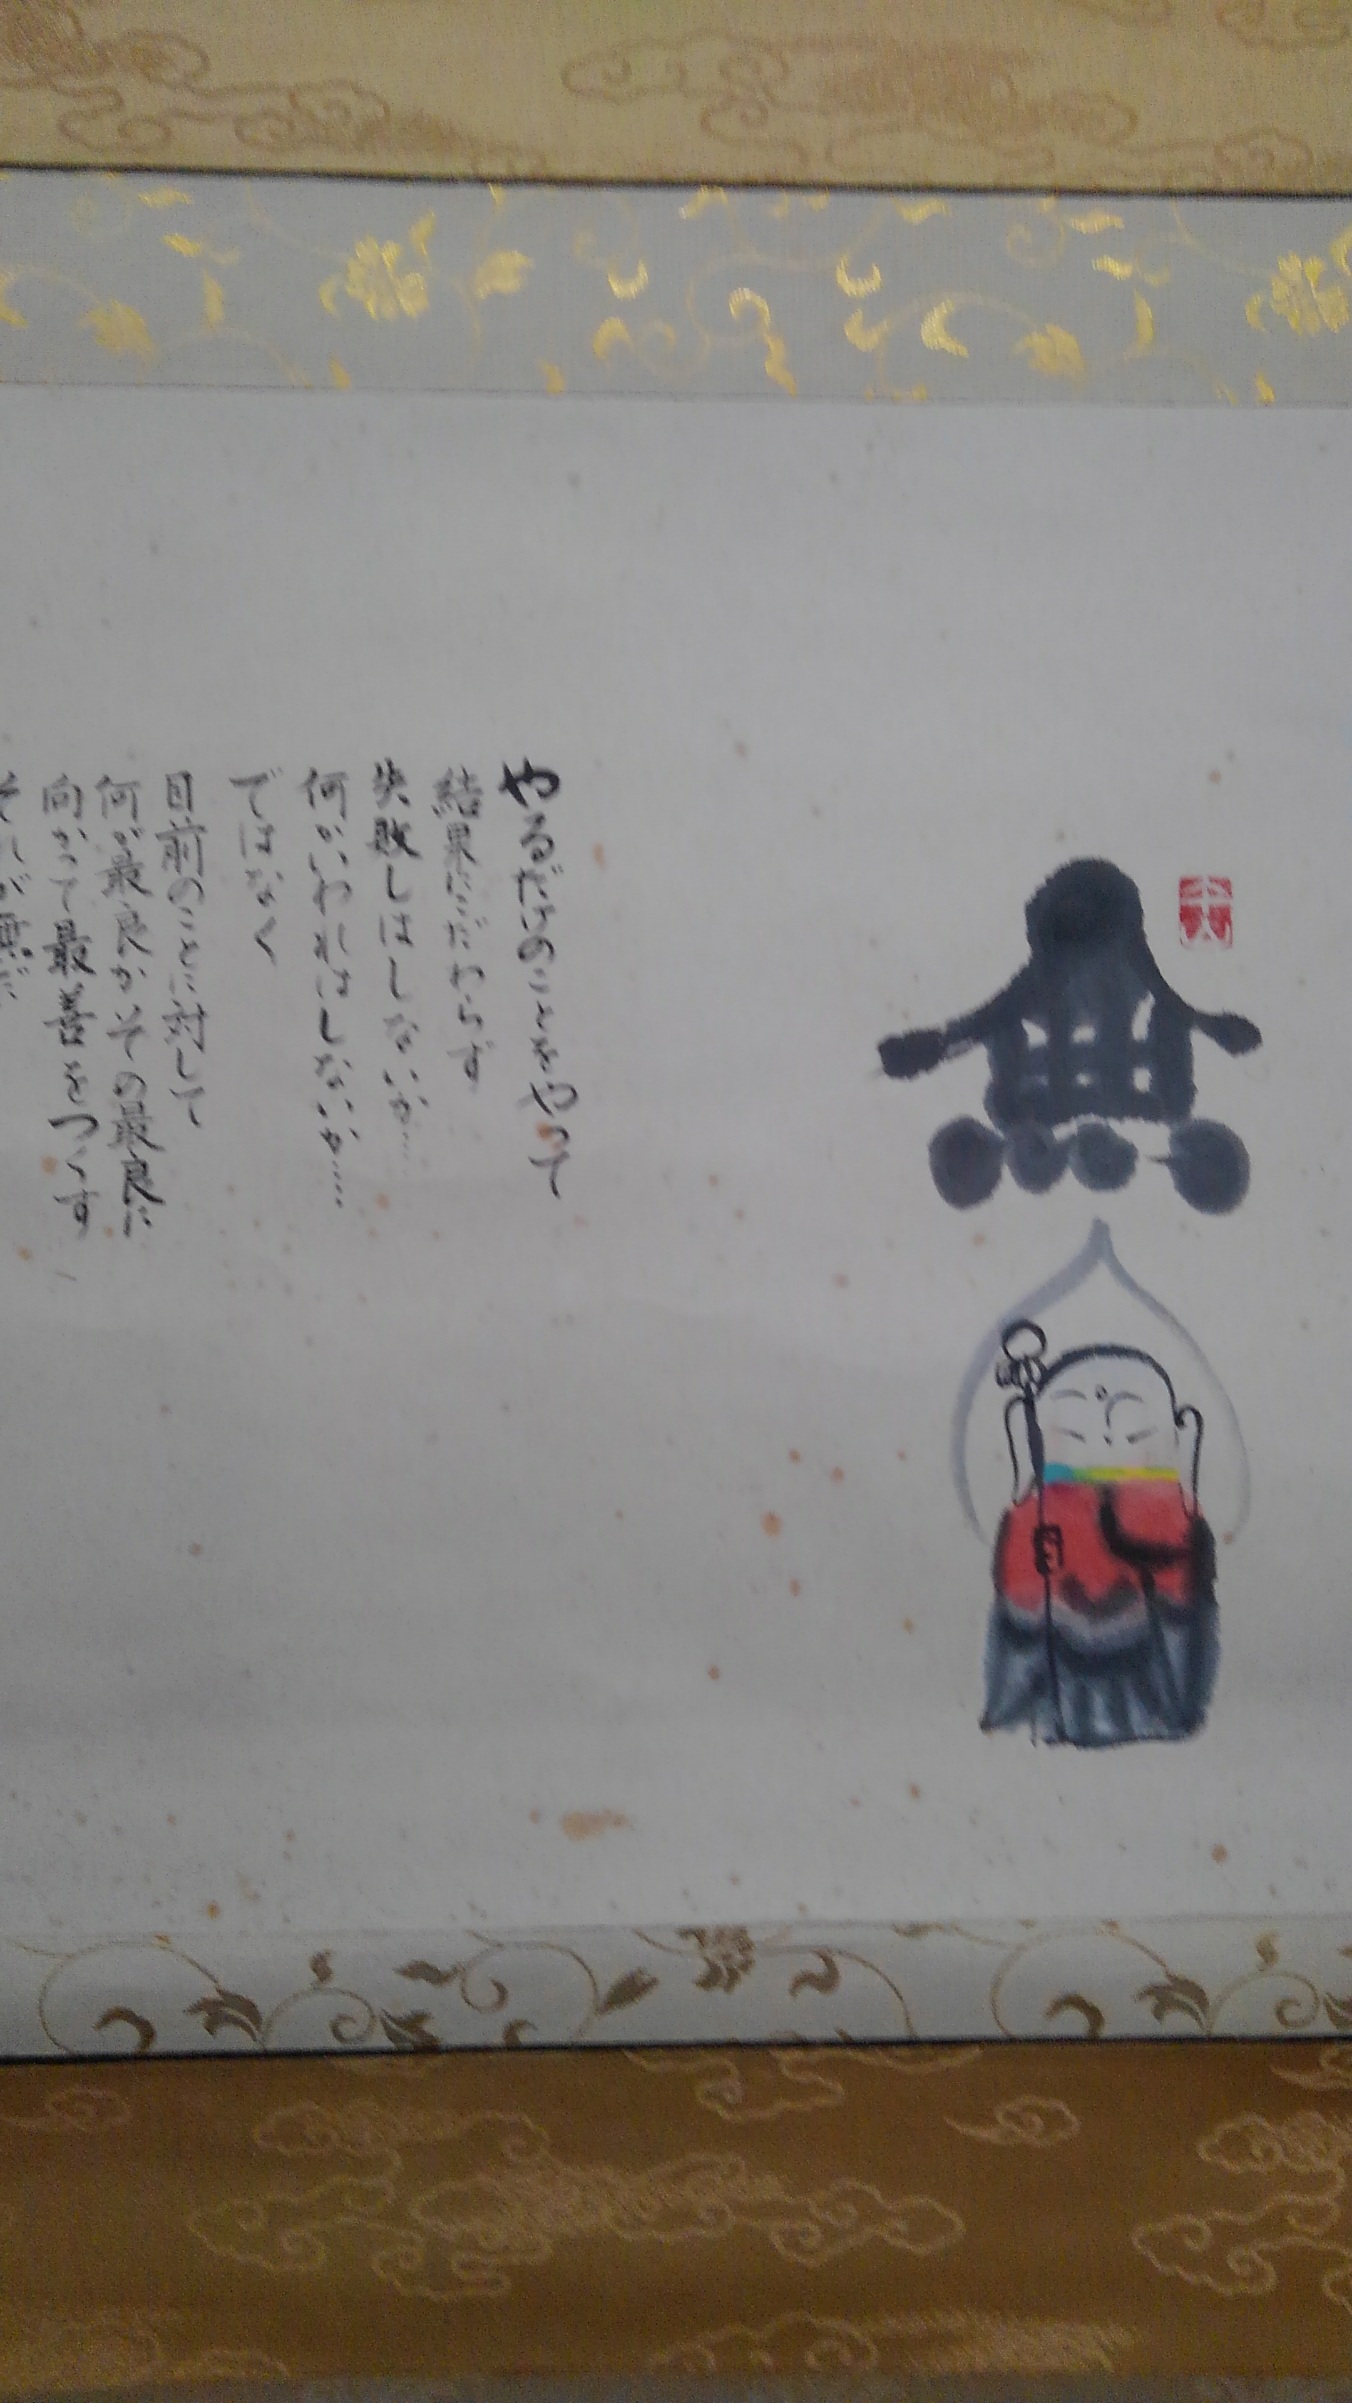 無
やるだけのことをやって
結果にこだわらず
失敗しはしないか……
何かいわれはしないか……
ではなく
目前のことに対して
何が最良かその最良に
向かって最善をつくす
それが無だ